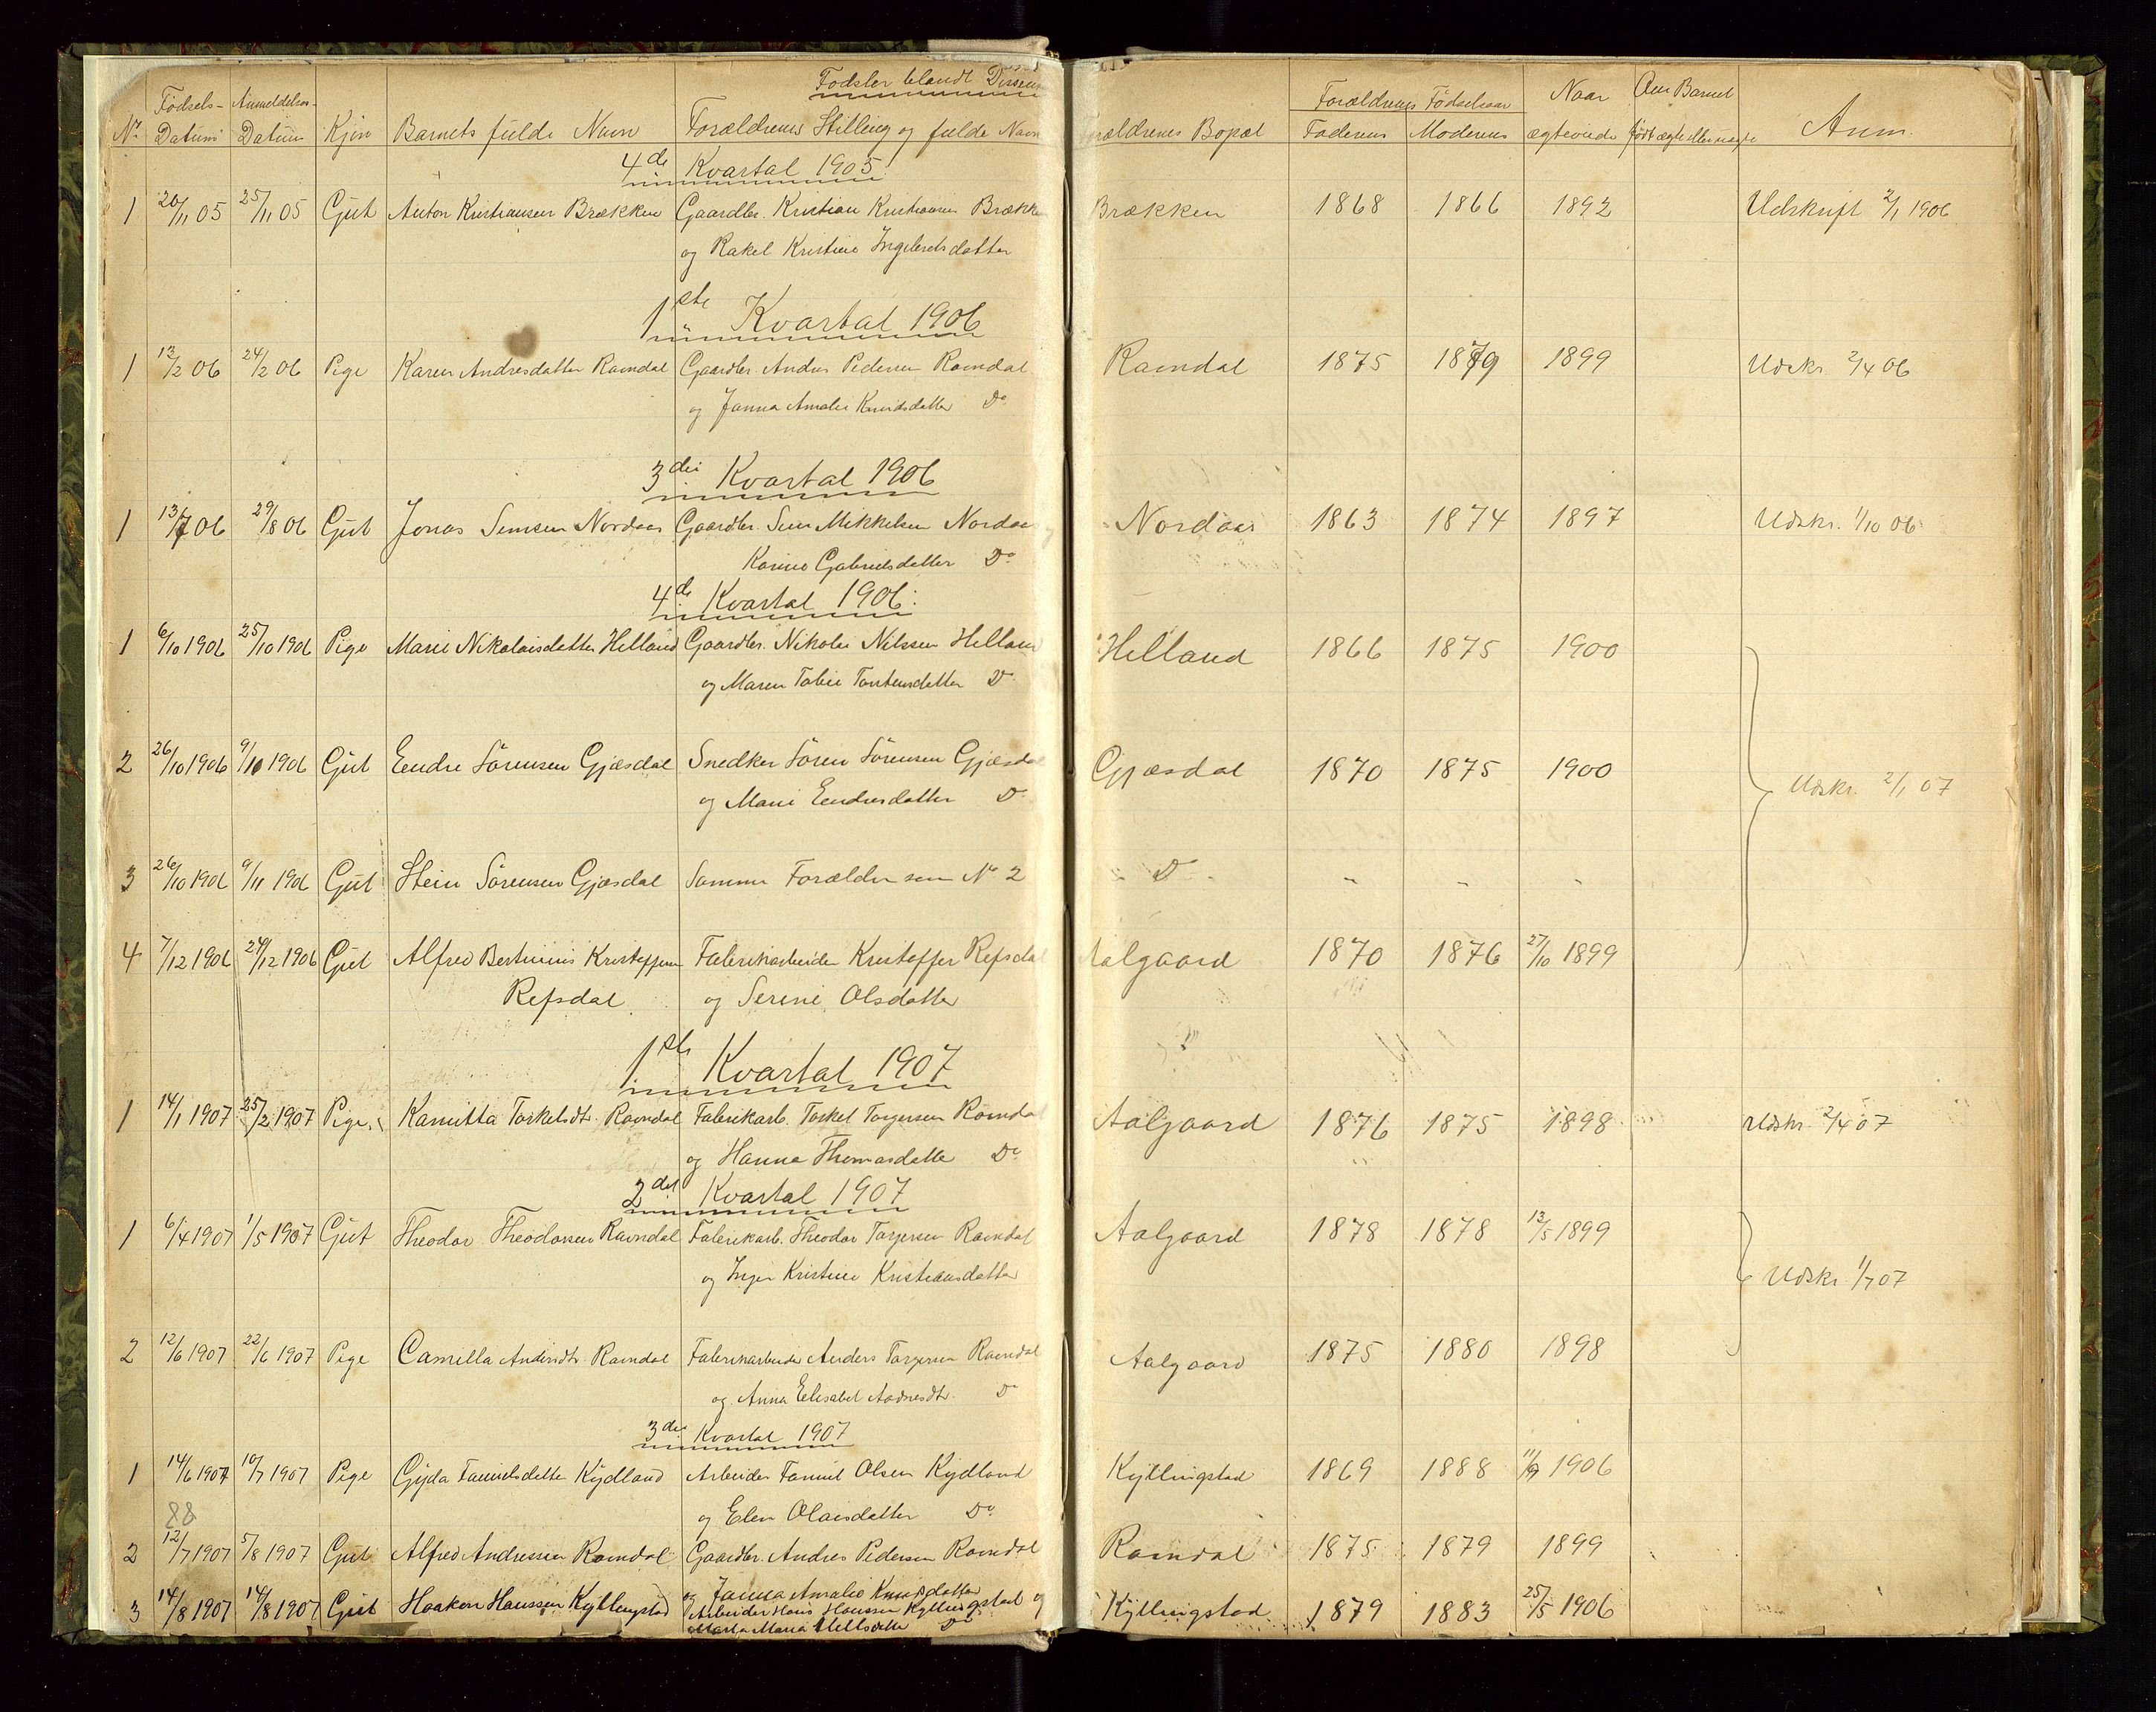 Fødsler blandt
Fødsels- Anmeldelses- Forældrenes Fødselsaar Naar Om Barnet
No Datum Datum Kjøn Barnets fulde Navn Forældrenes Stilling og fulde Navn Forældrenes Bopæl Faderens Moderens ægteviede født ægte eller uægte Anm.
4de Kvartal 1905
1 20/11 05 25/11 05 Gut Anton Kristiansen Brækken Gaardbr. Kristian Kristiansen Brækken Brækken 1868 1866 1892 Udskrift 2/1 1906
og Rakel Kristine Ingebretsdatter
1ste Kvartal 1906
1 13/2 06 24/2 06 Pige Karen Andresdatter Ravndal Gaardbr. Andres Pedersen Ravndal Ravndal 1875 1879 1899 Udskr. 2/4 06
og Janna Amalie Knudsdatter Do
3die Kvartal 1906
1 13/7 06 29/8 06 Gut Jonas Simsen Nordaas Gaardbr. Sem Mikkelsen Nordaas og Nordaas 1863 1874 1897 Udskr. 1/10 06
Karine Gabrielsdatter Do
4de Kvartal 1906.
1 6/10 1906 25/10 1906 Pige Marie Nikolaisdatter Helland Gaardbr. Nikolai Nilssen Helland Helland 1866 1875 1900
og Maren Tobie Torstensdatter Do
2 26/10 1906 9/11 1906 Gut Eendre Sørensen Gjæsdal Snedker Søren Sørensen Gjæsdal Gjæsdal 1870 1875 1900 Udskr. 2/1 07
og Marie Eendresdatter Do
3 26/10 1906 9/11 1906 Gut Stein Sørensen Gjæsdal Samme Forældre som No 2 Do - - -
4 7/12 1906 24/12 1906 Gut Alfred Bertinius Kristoffersen Fabrikarbeider Kristoffer Refsdal Aalgaard 1870 1876 27/10 1899
Refsdal og Serine Olsdatter
1ste Kvartal 1907
1 14/1 1907 25/2 1907 Pige Kamitta Torkelsdtr. Ravndal Fabrikarb. Torkel Torgersen Ravndal Aalgaard 1876 1875 1898 Udskr 2/4 07
og Hanna Thomasdatter Do
2det Kvartal 1907
1 6/4 1907 1/5 1907 Gut Theodor Theodorsen Ravndal Fabrikarb. Theodor Torgersen Ravndal Aalgaard 1878 1878 13/5 1899
og Inger Kristine Kristiansdatter Udskr 1/7 07
2 12/6 1907 22/6 1907 Pige Camilla Andersdtr. Ravndal Fabrikarbeider Anders Torgersen Ravndal Aalgaard 1875 1880 1898
og Anna Elisabet Aadnesdtr. Do
3die Kvartal 1907
1 14/6 1907 10/7 1907 Pige Gyda Tamielsdatter Kydland Arbeider Tamiel Olsen Kydland Kyllingstad 1869 1888 11/9 1906
88 og Elen Olaisdatter Do
2 12/7 1907 5/8 1907 Gut Alfred Andressen Ravndal Gaardbr. Andres Pedersen Ravndal Ravndal 1875 1879 1899
og Janna Amalie Knudsdatter
3 14/8 1907 14/8 1907 Gut Haakon Hanssen Kyllingstad Arbeider Hans Hanssen Kyllingstad og Kyllingstad 1879 1883 25/5 1906
Marta Maria Do